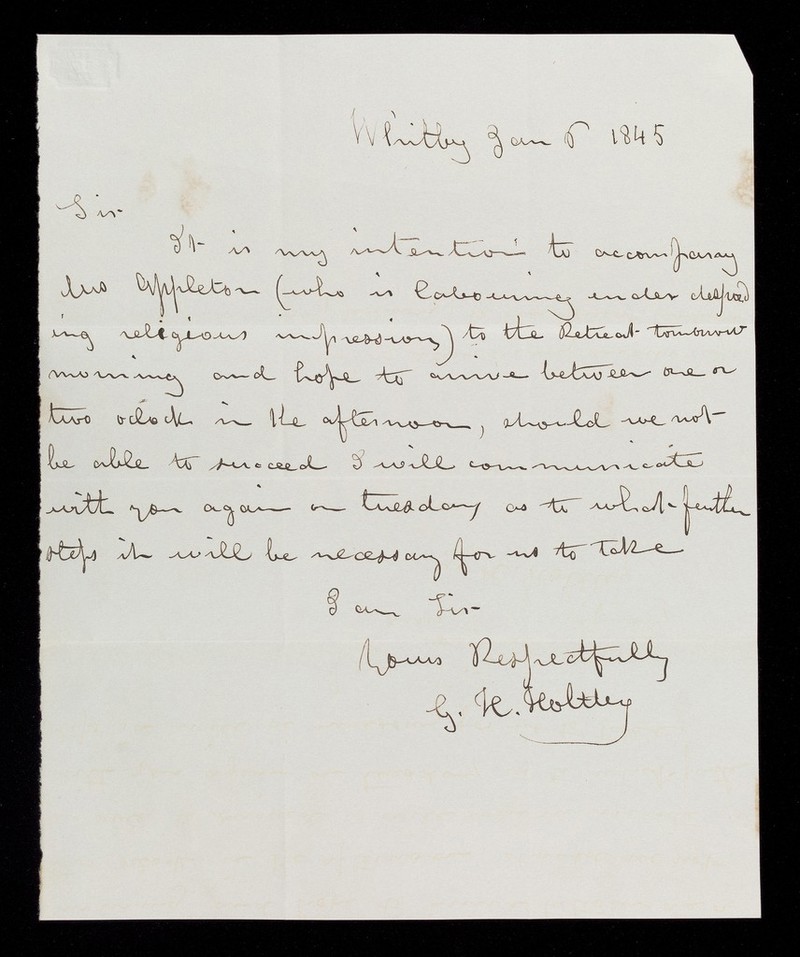 Whitby Jan 6 1845
Sir
It is my intention to accompany
Mrs Appleton (who is labouring under despond
ing religious impressions) to the Retreat tomorrow
morning and hope to arrive between one or
two oclock in the afternoon, should we not
be able to succeed I will communicate
with you again on tuesday as to what further
steps it will be necessary for us to take
I am Sir
Yours Respectfully
G. H. Holtby